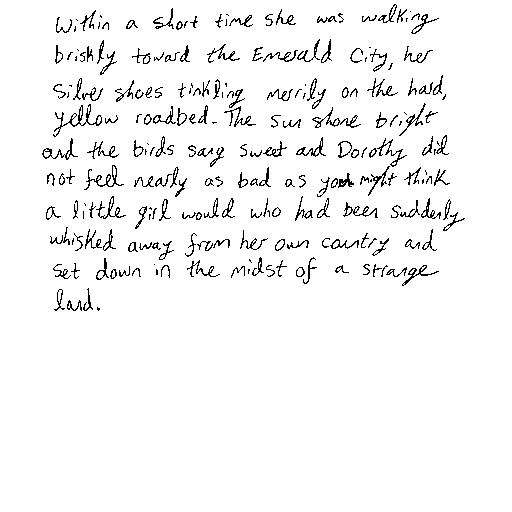 Within a short time she was walking
briskly toward the Emerald City, her
Silver Shoes tinkling merrily on the hard,
yellow roadbed. The sun shone bright
and the birds sang sweet and Dorothy did
not feel nearly as bad as you might think
a little girl would who had been suddenly
whisked away from her own country and
set down in the midst of a strange
land.